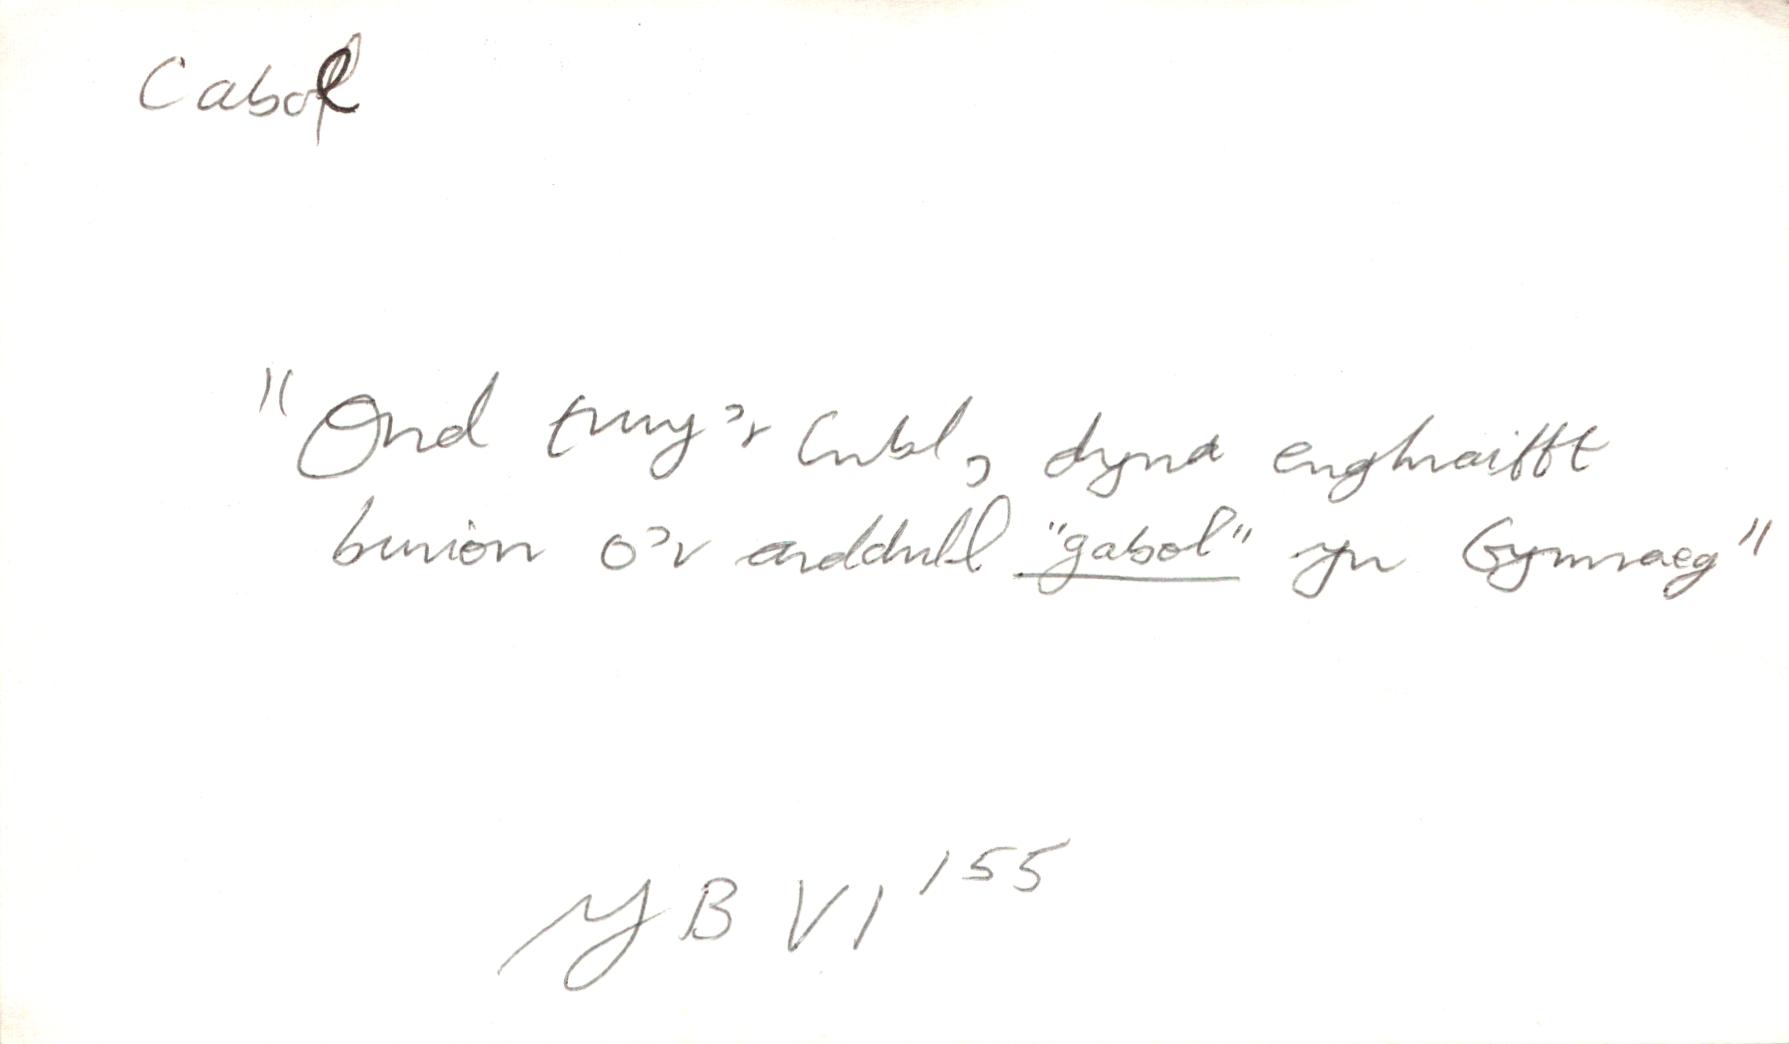 Cabol
"Ond trwy'r cwbl, dyna enghraifft
burion o'r arddull "gabol" yn Gymraeg"
YB VI 155